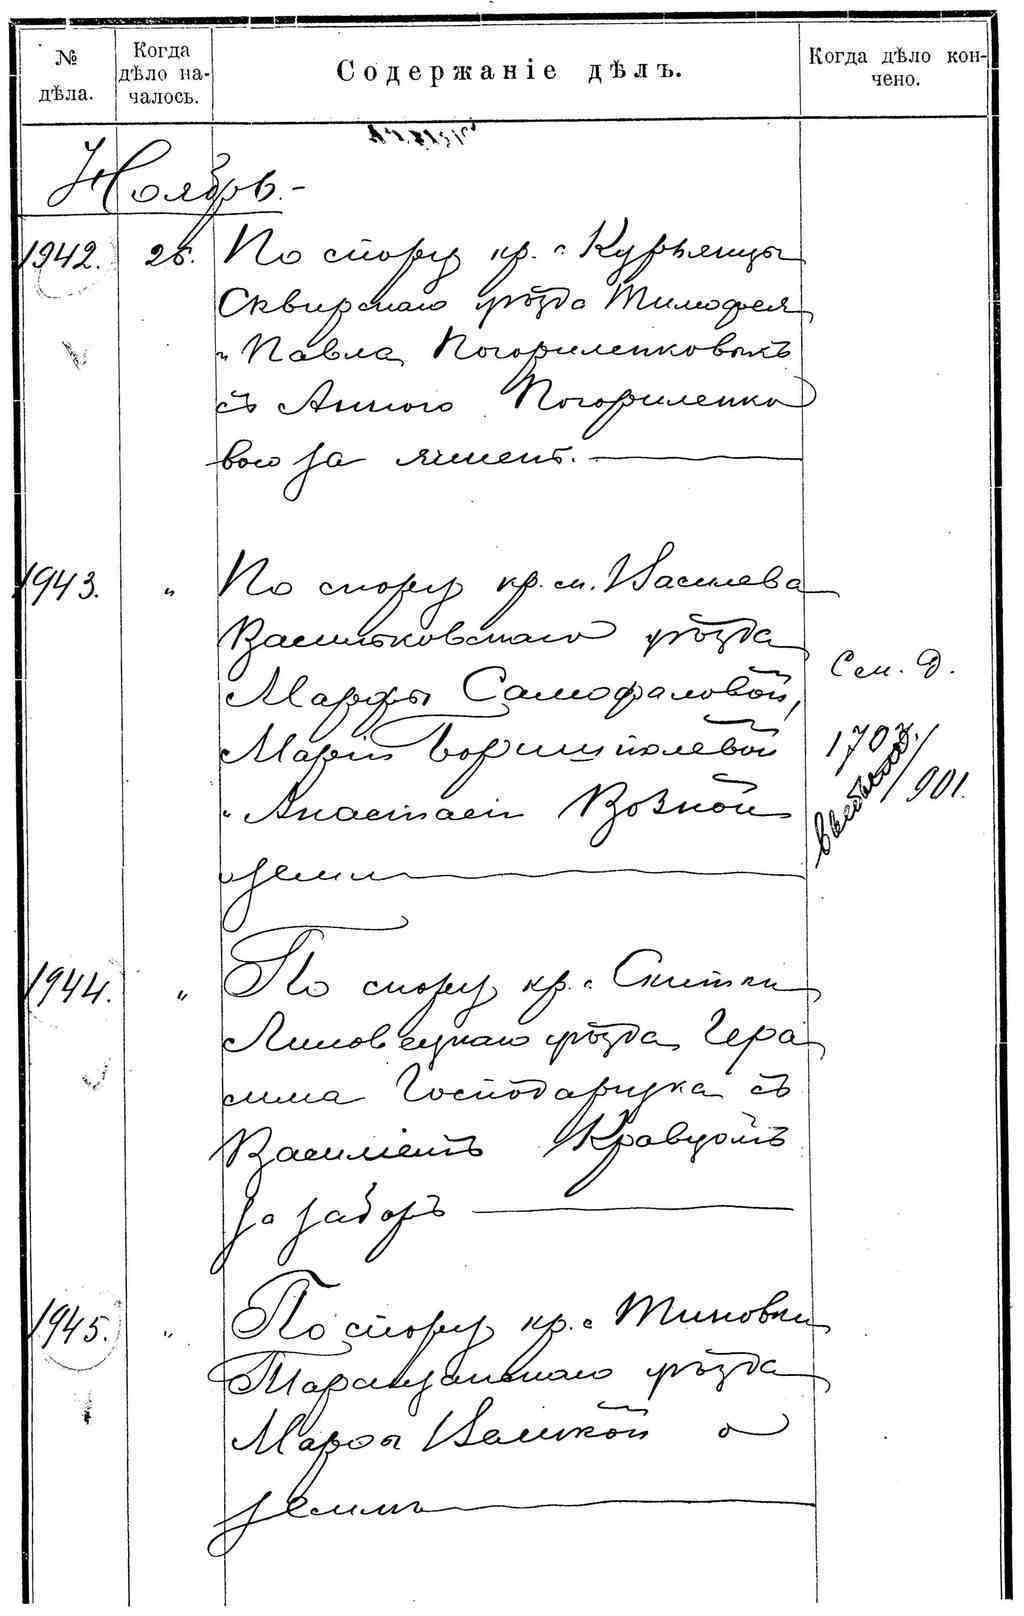 № дѣла.
Когда дѣло на-
чалось.
Содержаніе дѣлъ.
Когда дѣло кон-
чено.
Ноябрь.-
1942. 26. По спору кр. с Курьянцы
Сквирскаго уѣзда Тимофея
и Павла Погориленковыхъ
съ Анною Погориленко
вою за ячмень.
1943. " По спору кр. м. Василева
Васильковскаго уѣзда
Марфы Самофаловой,
Маріи Боришполевой
и Анастасіи Возной
о земли
См. д.
1707/901.
1944. " По спору кр. с Скитки
Липовецкаго уѣзда Гера
сима Господарчука съ
Василіемъ Кравцомъ
за заборъ
1945. " По спору кр. с Тиновки
Таращанскаго уѣзда
Марфы Великой о
землѣ